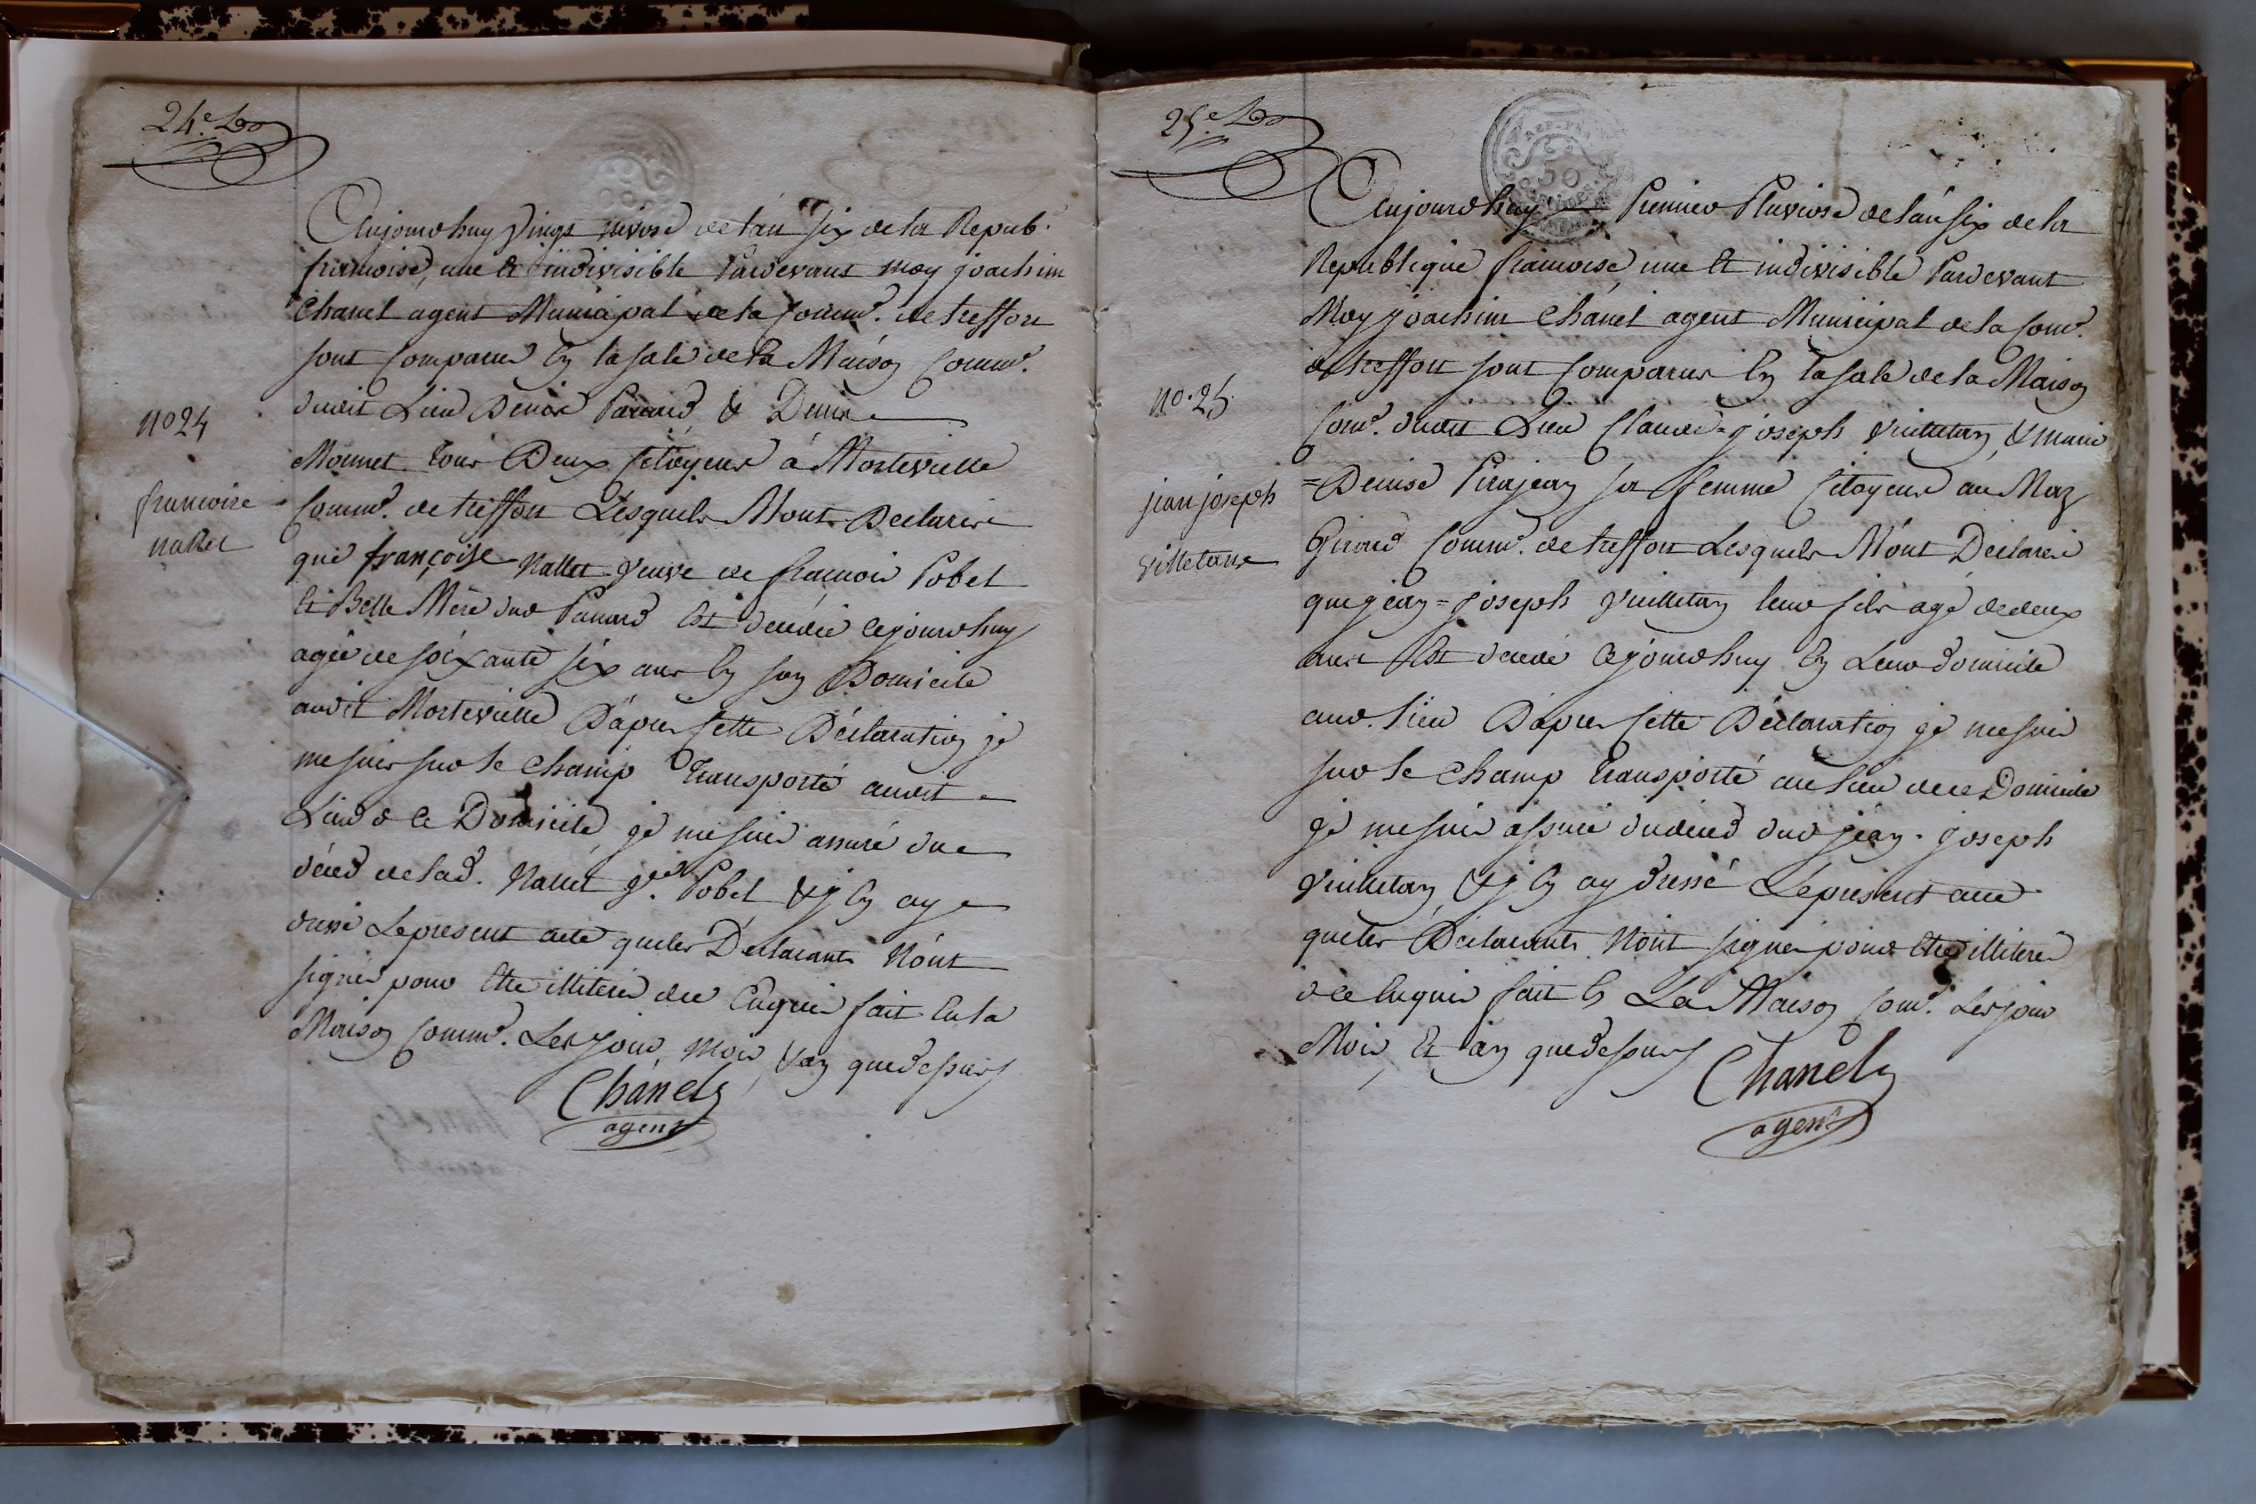 24.e
Aujourdhuy vingt nivose de l'an six de la Repub.
francoise, une et indivisible Pardevant moy joachim
Chanel agent Municipal de la Comm.e de treffort
sont Comparus En la sale de la Maison Comm.e
dudit Lieu Denis Panard & Denis
Monnet tous Deux Citoyens à Montevielle
Comm.e de treffort Lesquels M'ont Declarés
que françoise Nallet veuve de francois Pobel
Et Belle Mère dud Panard Est décédée cejourdhuy
agée de soixante six ans En son Domicile
audit Morteville D'apres Cette Déclaration je
me suis sur le Champ Transporté audit
Lieu & Ce Domicile je me suis assuré du
décéd de lad. Nallet v.e Pobel & j'En ay
dressé Le present acte que les Déclarants N'ont
signés pour Etre illiterés de Ce Enquis fait En la
Maison Comm.e Les jour, Mois, & an que dessus
Chanel
agent
no 24
francoise
nallet
25.e
Aujourdhuy Premier Pluviose de l'an six de la
Republique francoise, une Et indivisible Pardevant
Moy joachim Chanel agent Municipal de la Com.e
de treffort sont Comparus En la sale de la Maison
Com.e dudit Lieu Claude=joseph vuilletan, & marie
=Denise Pirajean sa femme Citoyens au Maz
Giroud Comm.e de treffort Lesquels M'ont Déclarés
que jean=joseph vuilletan leur fils agé de deux
ans Est décédé Cejourdhuy En Leur domicile
aud. Lieu D'apres Cette Déclaration je me suis
sur le Champ Transporté au Lieu de ce Domicile
je me suis assuré du décéd dud jean-joseph
vuilletan, & j'En ay dressé Le present acte
que les Déclarants N'ont signer pour Etre illiterés
de Ce Enquis fait En La Maison Com.e Les jour
Mois, Et an que dessus
Chanel
agent
no. 25.
jean joseph
villetans